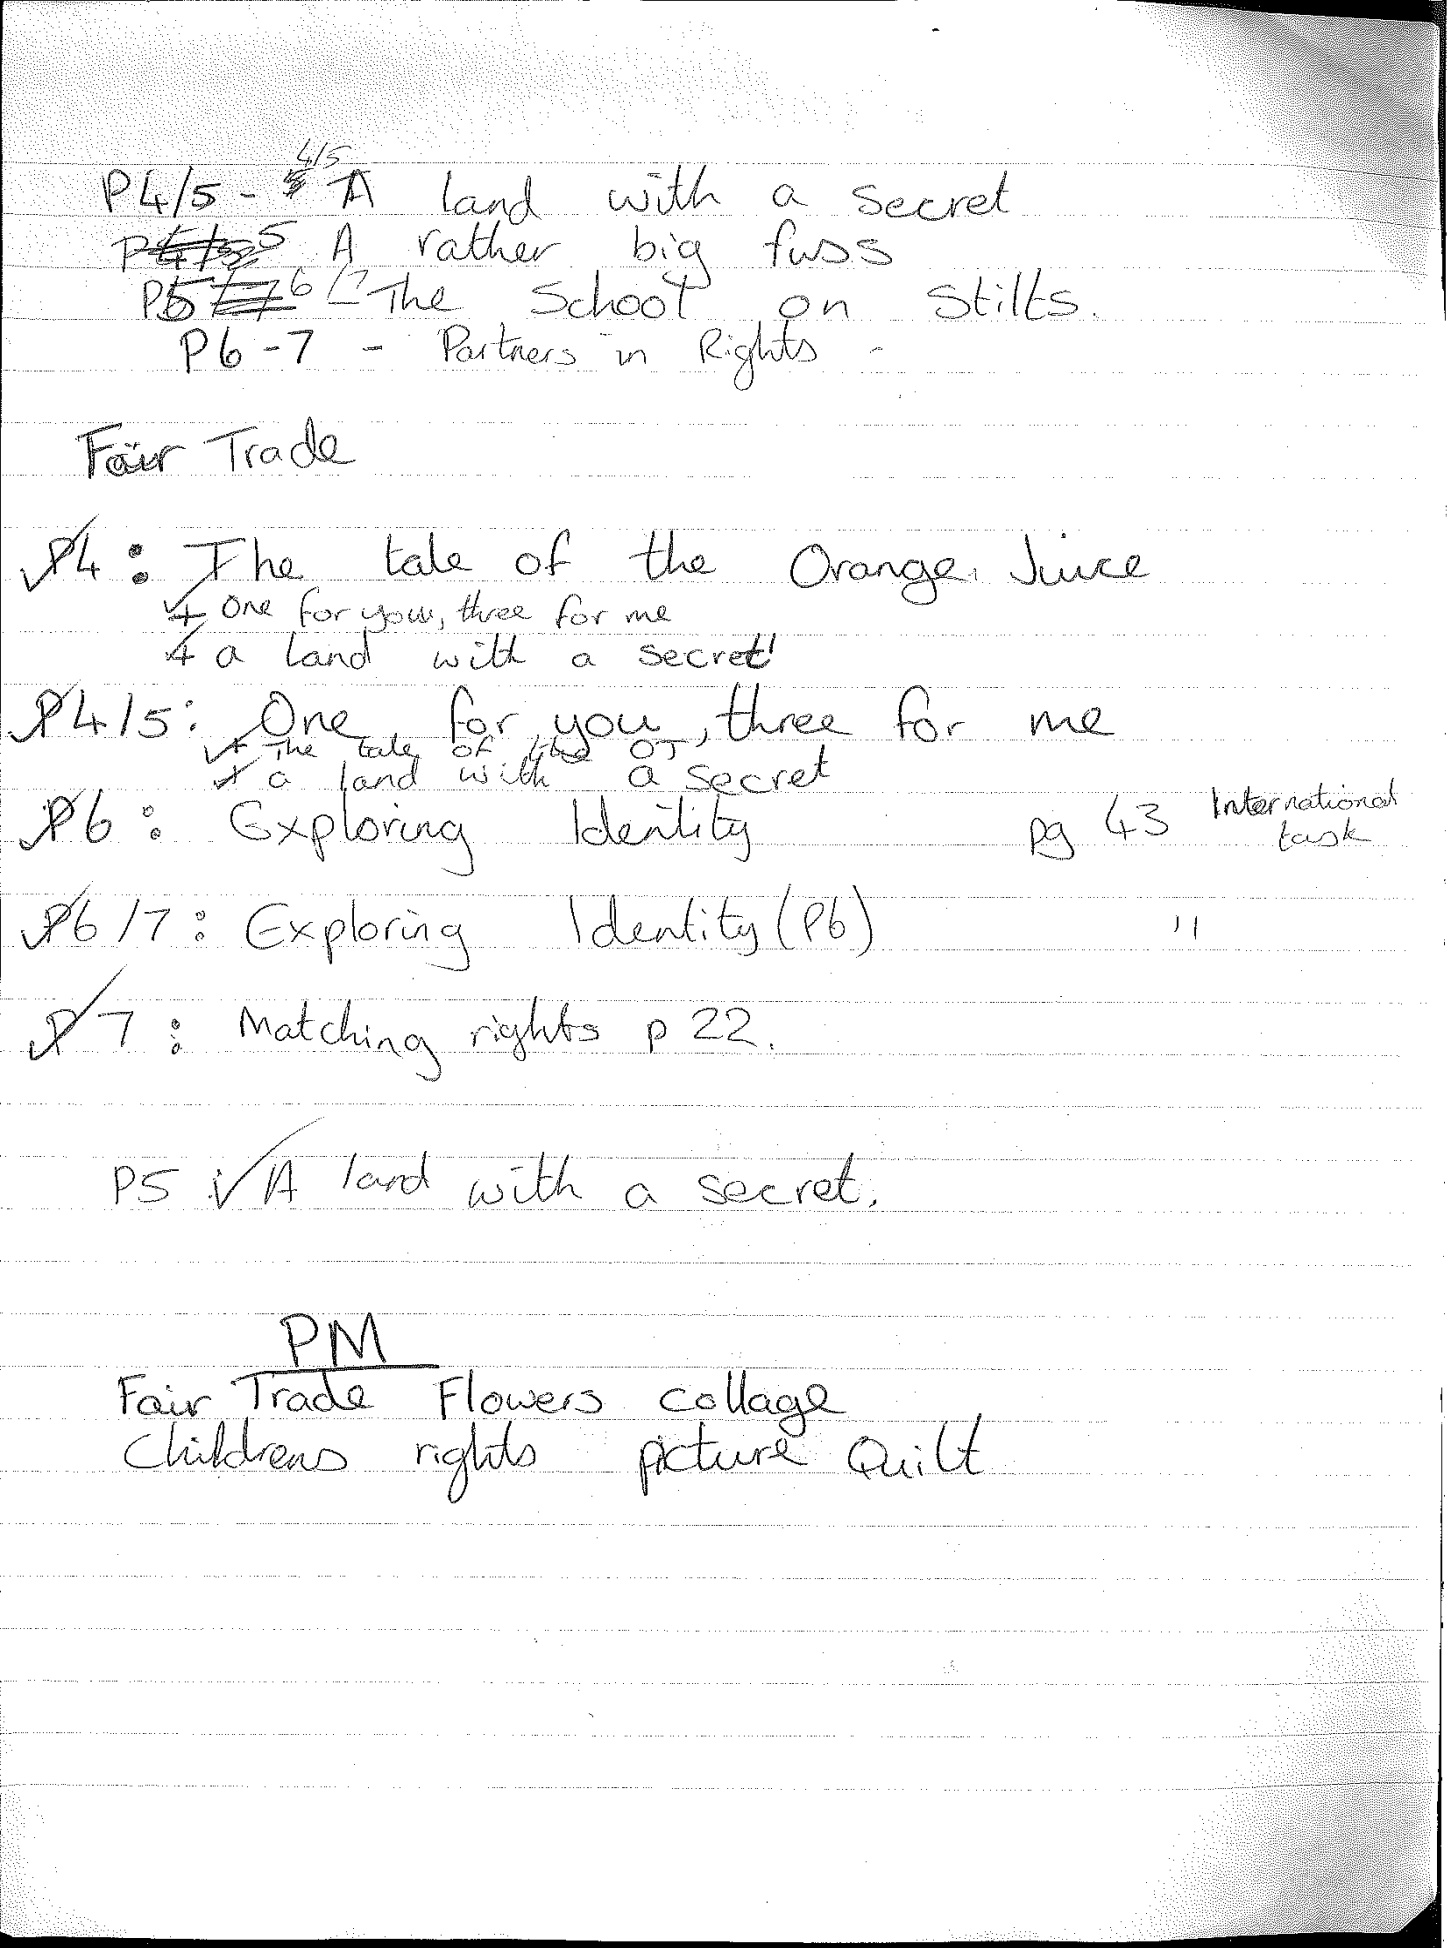 4/5
P4/5 - A land with a secret
P 5 A rather big fuss
P 6/7 The School on Stilts.
P6-7 - Partners in Rights -
Fair Trade
P4: The tale of the Orange Juice
+ One for you, three for me
+ a land with a secret
P4/5: One for you, three for me
+ The tale of the OJ
+ a land with a secret
P6: Exploring Identity pg 43 International
task
P6/7: Exploring Identity (P6) "
P7: Matching rights p 22.
P5 : A land with a secret.
PM
Fair Trade Flowers collage
Childrens rights picture Quilt